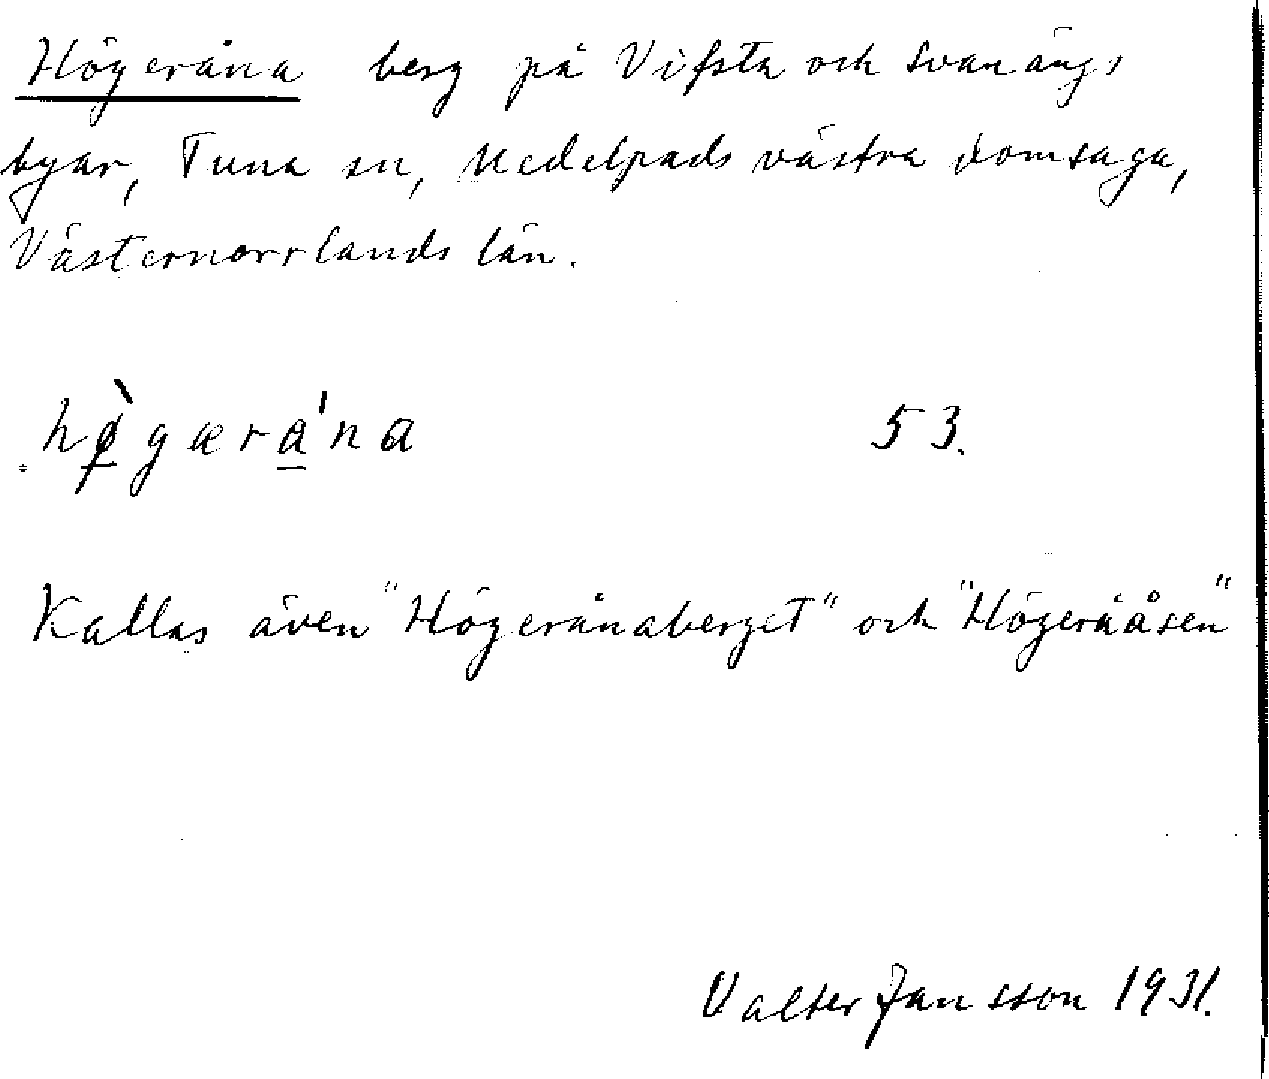 Högeråna berg på Vifsta och Svanängs
byar, Tuna sn, Medelpads västra domsaga,
Västernorrlands län.
hø̀gæra̲'na 53.
Kallas även "Högerånaberget" och "Högerååsen"
Valter Jansson 1931.